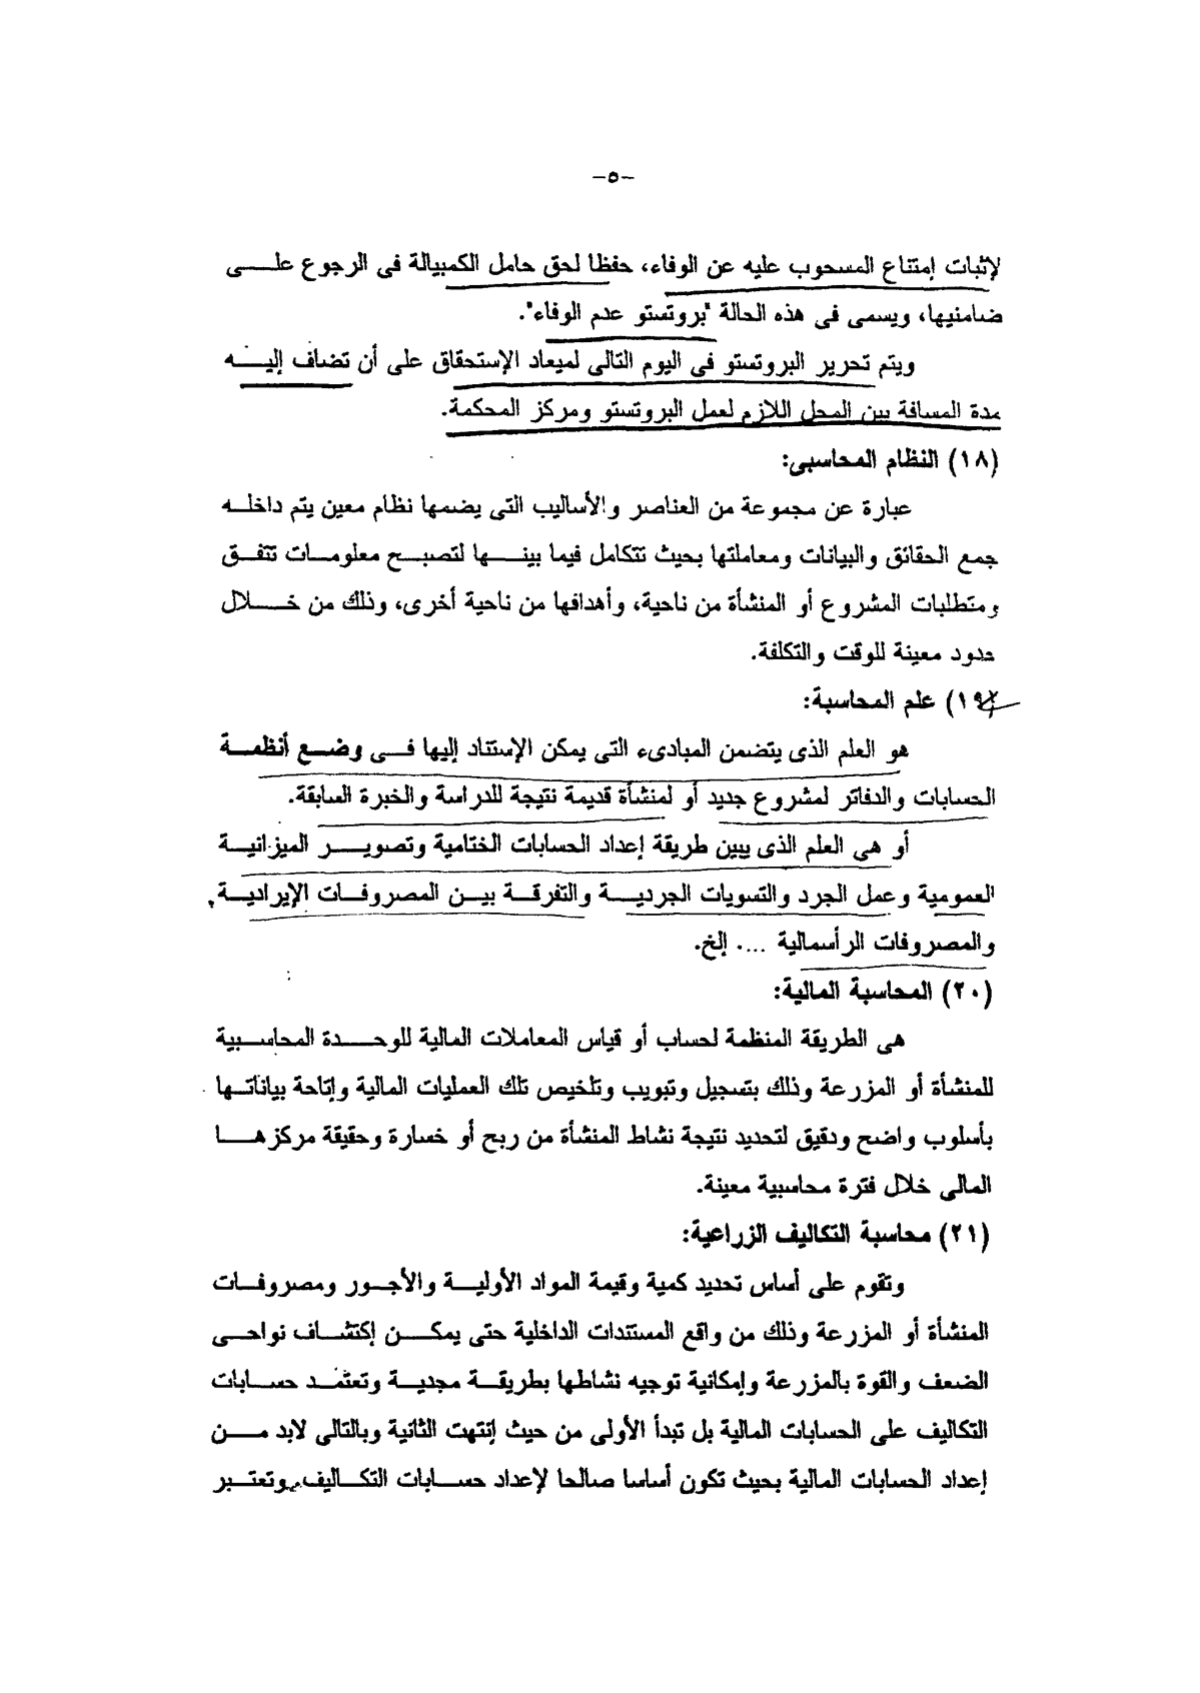 -٥-
لإثبات إمتناع المسحوب عليه عن الوفاء، حفظا لحق حامل الكمبيالة فى الرجوع علـــى
ضامنيها، ويسمى فى هذه الحالة "بروتستو عدم الوفاء".
ويتم تحرير البروتستو فى اليوم التالى لميعاد الإستحقاق على أن تضاف إليـــه
مدة المسافة بين المحل اللازم لعمل البروتستو ومركز المحكمة.
(١٨) النظام المحاسبى:
عبارة عن مجموعة من العناصر والأساليب التى يضمها نظام معين يتم داخلـــه
جمع الحقائق والبيانات ومعاملتها بحيث تتكامل فيما بينـــها لتصبـــح معلومـــات تتفـــق
ومتطلبات المشروع أو المنشأة من ناحية، وأهدافها من ناحية أخرى، وذلك من خـــلال
حدود معينة للوقت والتكلفة.
(١٩) علم المحاسبة:
هو العلم الذى يتضمن المبادىء التى يمكن الإستناد إليها فـــى وضـــع أنظمـــة
الحسابات والدفاتر لمشروع جديد أو لمنشأة قديمة نتيجة للدراسة والخبرة السابقة.
أو هى العلم الذى يبين طريقة إعداد الحسابات الختامية وتصويـــر الميزانيـــة
العمومية وعمل الجرد والتسويات الجرديـــة والتفرقـــة بيـــن المصروفـــات الإيراديـــة,
والمصروفات الرأسمالية .... إلخ.
(٢٠) المحاسبة المالية:
هى الطريقة المنظمة لحساب أو قياس المعاملات المالية للوحـــدة المحاســـبية
للمنشأة أو المزرعة وذلك بتسجيل وتبويب وتلخيص تلك العمليات المالية وإتاحة بياناتـــها
بأسلوب واضح ودقيق لتحديد نتيجة نشاط المنشأة من ربح أو خسارة وحقيقة مركزهـــا
المالى خلال فترة محاسبية معينة.
(٢١) محاسبة التكاليف الزراعية:
وتقوم على أساس تحديد كمية وقيمة المواد الأوليـــة والأجـــور ومصروفـــات
المنشأة أو المزرعة وذلك من واقع المستندات الداخلية حتى يمكـــن إكتشـــاف نواحـــى
الضعف والقوة بالمزرعة وإمكانية توجيه نشاطها بطريقـــة مجديـــة وتعتمـــد حســـابات
التكاليف على الحسابات المالية بل تبدأ الأولى من حيث إنتهت الثانية وبالتالى لابد مـــن
إعداد الحسابات المالية بحيث تكون أساسا صالحا لإعداد حســـابات التكـــاليف وتعتـــبر